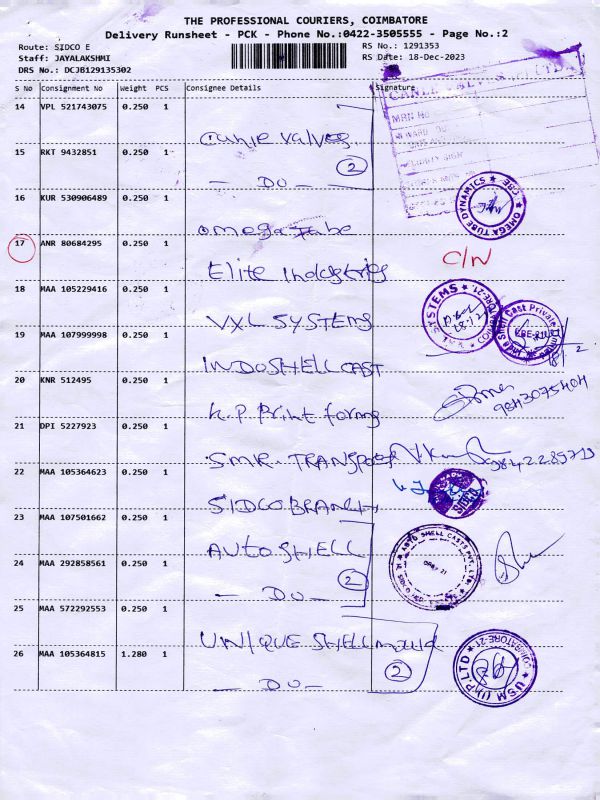 THE PROFESSIONAL COURIERS, COIMBATORE
Delivery Runsheet - PCK - Phone No.:0422-3505555 - Page No.:2
Route: SIDCO E
Staff: JAYALAKSHMI
DRS No.: DCJB129135302
RS No.: 1291353
RS Date: 18-Dec-2023
S No Consignment No Weight PCS Consignee Details Signature
14 VPL 521743075 0.250 1
Canie valves
15 RKT 9432851 0.250 1
- DO - 2
16 KUR 530906489 0.250 1
OMEGA TUBE DYNAMICS * CBE
omega Tube
17 ANR 80684295 0.250 1
Elite Industries C/N
18 MAA 105229416 0.250 1
VXL SYSTEMS
19 MAA 107999998 0.250 1
INDOSHELL CAST
20 KNR 512495 0.250 1
K.P. Print forms
21 DPI 5227923 0.250 1
SMR. TRANSPORT
22 MAA 105364623 0.250 1
SIDCO BRANCH
23 MAA 107501662 0.250 1
AUTO SHELL
24 MAA 292858561 0.250 1
- DO - 2
25 MAA 572292553 0.250 1
UNIQUE SHELL mould
26 MAA 105364815 1.280 1
USM (I) P LTD * COIMBATORE-21
- DO - 2